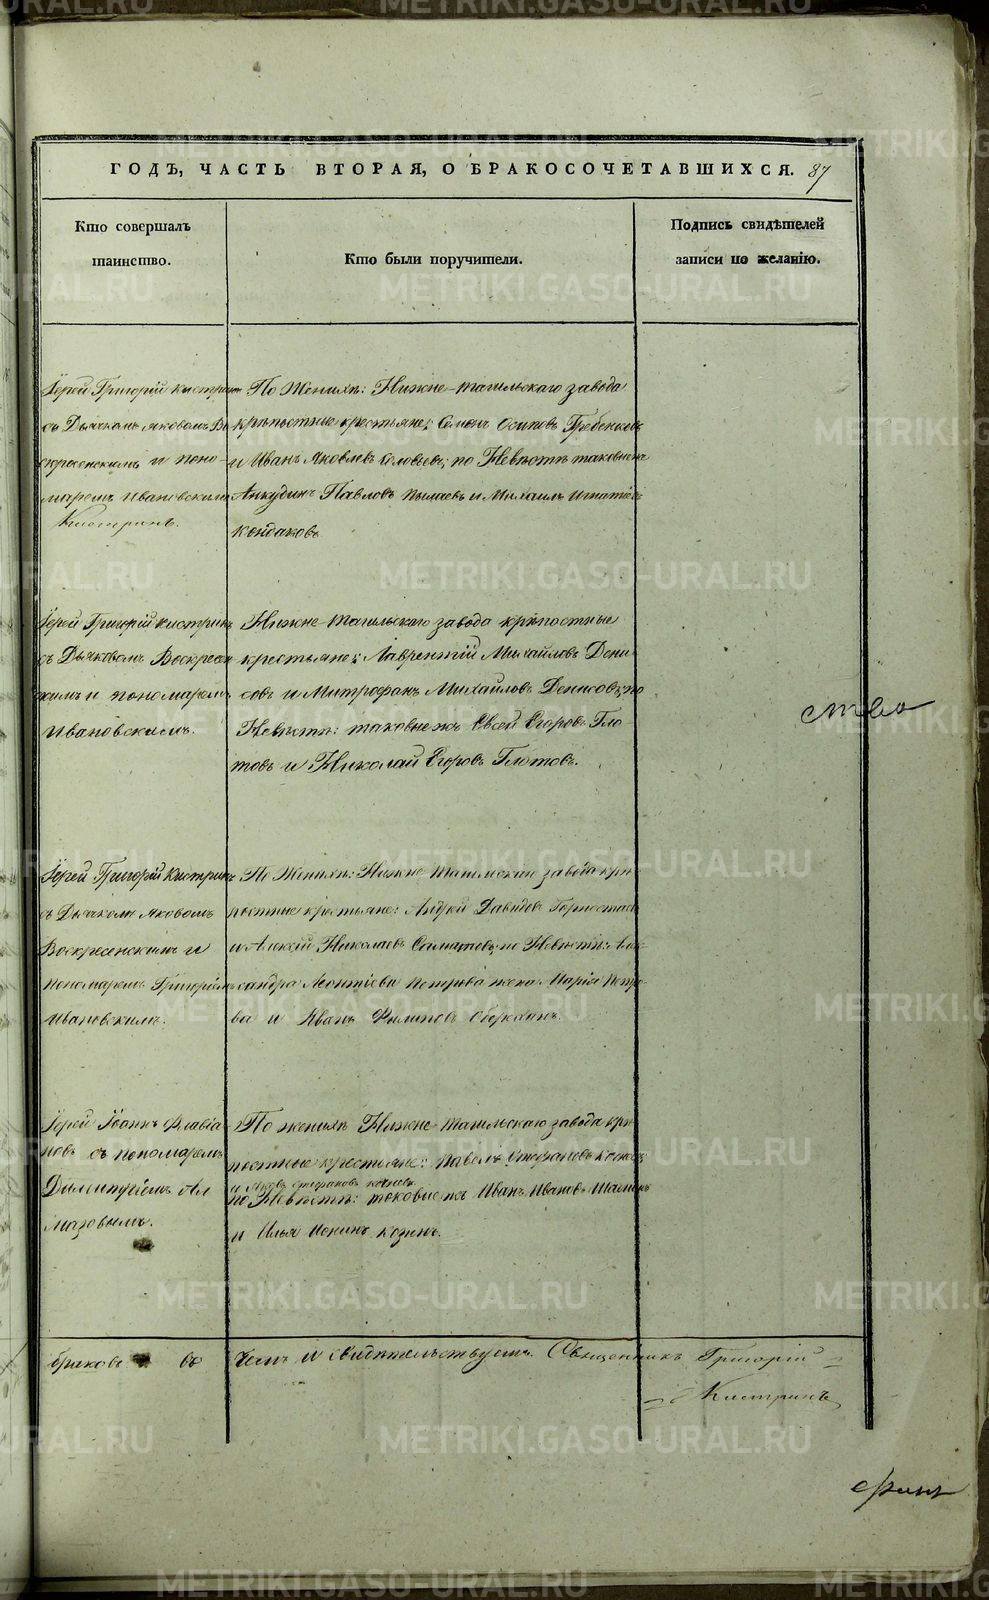 ГОДЪ, ЧАСТЬ ВТОРАЯ, О БРАКОСОЧЕТАВШИХСЯ. 87
Кто совершалъ
таинство.
Кто были поручители.
Подпись свидѣтелей
записи по желанію.
Іерей Григорій Кистринъ
съ Дьячкомъ Яковомъ Во
скресенскимъ и поно-
маремъ Ивановскимъ
Кистринъ.
По Женихѣ: Нижне-тагильскаго завода
крѣпостные крестьяне: Семенъ Осиповъ
и Иванъ Яковлевъ Соловьевъ; по Невѣстѣ таковыежъ
Анкудинъ Павловъ и Михаилъ Игнатіевъ
Кондаковъ
Іерей Григорій Кистринъ
съ Дьячкомъ Воскресен
скимъ и пономаремъ
Ивановскимъ.
Нижне-Тагильскаго завода крѣпостные
крестьяне: Лаврентій Михайловъ Дени
совъ и Митрофанъ Михайловъ Денисовъ; по
Невѣстѣ: таковыежъ Евсей Егоровъ Гло
товъ и Николай Егоровъ Глотовъ.
ства
Іерей Григорій Кистринъ
съ Дьячкомъ Яковомъ
Воскресенскимъ и
пономаремъ Григоріемъ
Ивановскимъ.
По Женихѣ: Нижне Тагильскаго завода крѣ
постные крестьяне: Андрей Давидовъ Горностаевъ
и Алексѣй Николаевъ по Невѣстѣ: Алек
сандра Леонтіева Петрова жена Марія Петро-
ва и Иванъ Филиповъ
Іерей Іоаннъ Флавіа
новъ съ пономаремъ
Димитріемъ Ал
мазовымъ.
По женихѣ Нижне Тагильскаго завода крѣ
постные крестьяне: Павелъ Стефановъ
и Яковъ Стефановъ
по Невѣстѣ: таковые же Иванъ Ивановъ
и Илья
браковъ въ чемъ и свидѣтельствуемъ. Священникъ Григорій
Кистринъ
METRIKI.GASO-URAL.RU